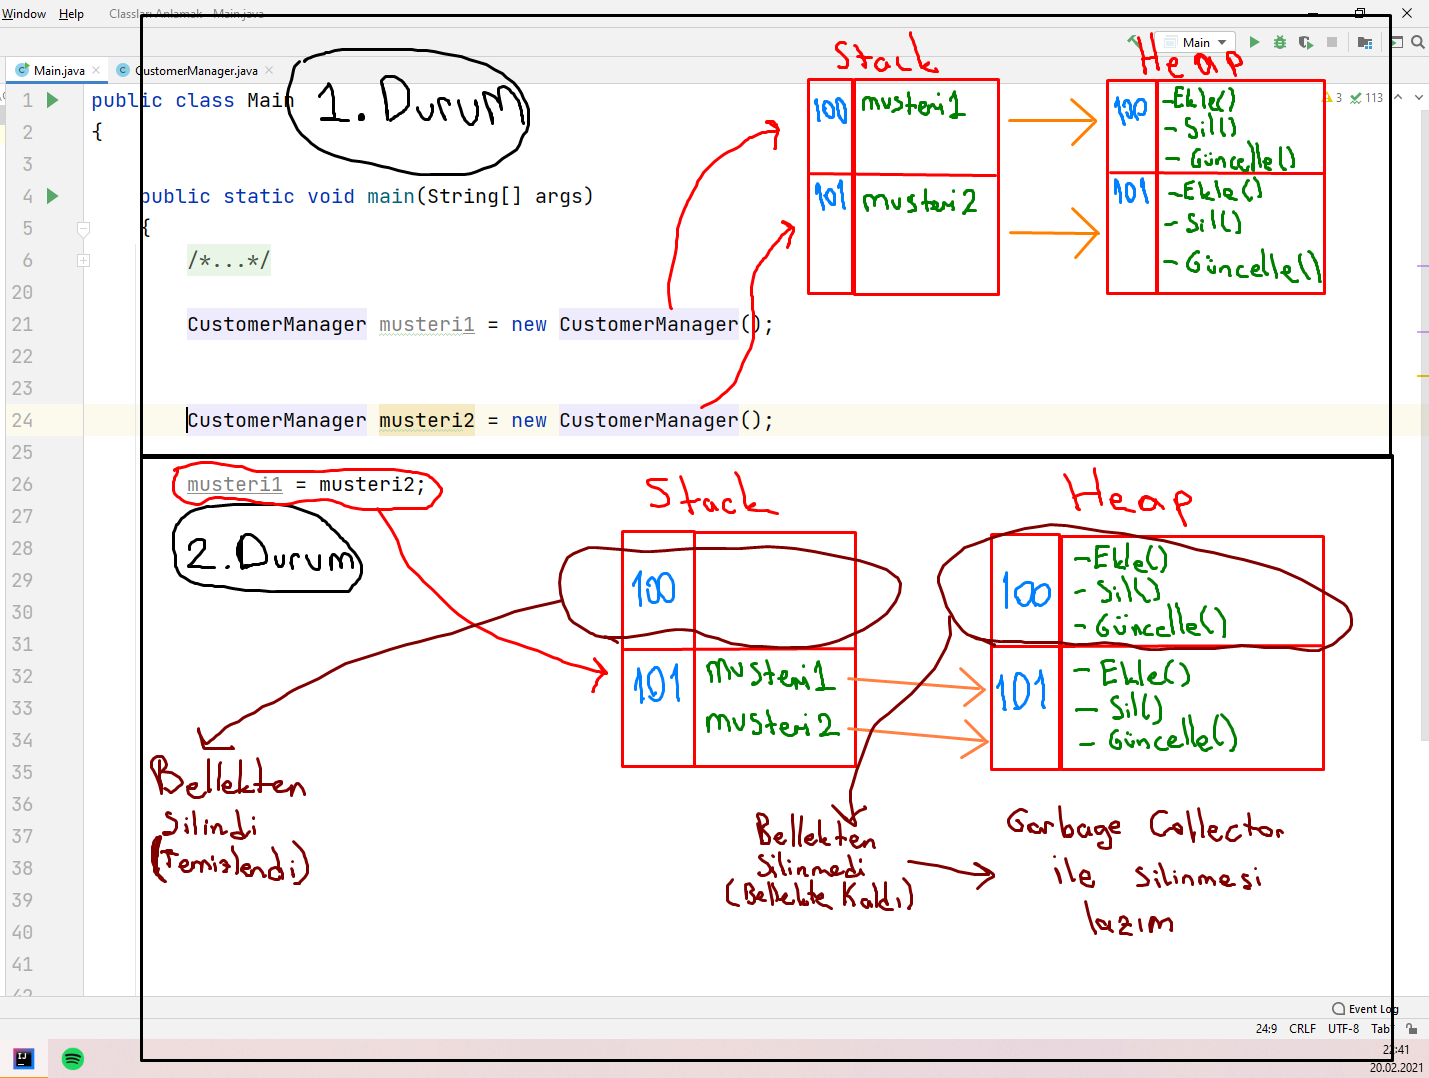 Window Help Classları Anlamak - Main.java
Main
Main.java CustomerManager.java
3 113
1 public class Main
2 {
3
4 public static void main(String[] args)
5 {
6 /*...*/
20
21 CustomerManager musteri1 = new CustomerManager();
22
23
24 CustomerManager musteri2 = new CustomerManager();
25
26 musteri1 = musteri2;
27
28
29
30
31
32
33
34
35
36
37
38
39
40
41
42
1. Durum
Stack Heap
100 musteri1
101 musteri2
100 -Ekle()
- Sil()
- Güncelle()
101 -Ekle()
- Sil()
- Güncelle()
2. Durum
Stack Heap
100
101 musteri1
musteri2
100 -Ekle()
- Sil()
- Güncelle()
101 - Ekle()
- Sil()
- Güncelle()
Bellekten
Silindi
(Temizlendi)
Bellekten
Silinmedi
(Bellekte Kaldı)
Garbage Collector
ile silinmesi
lazım
Event Log
24:9 CRLF UTF-8 Tab
22:41
20.02.2021